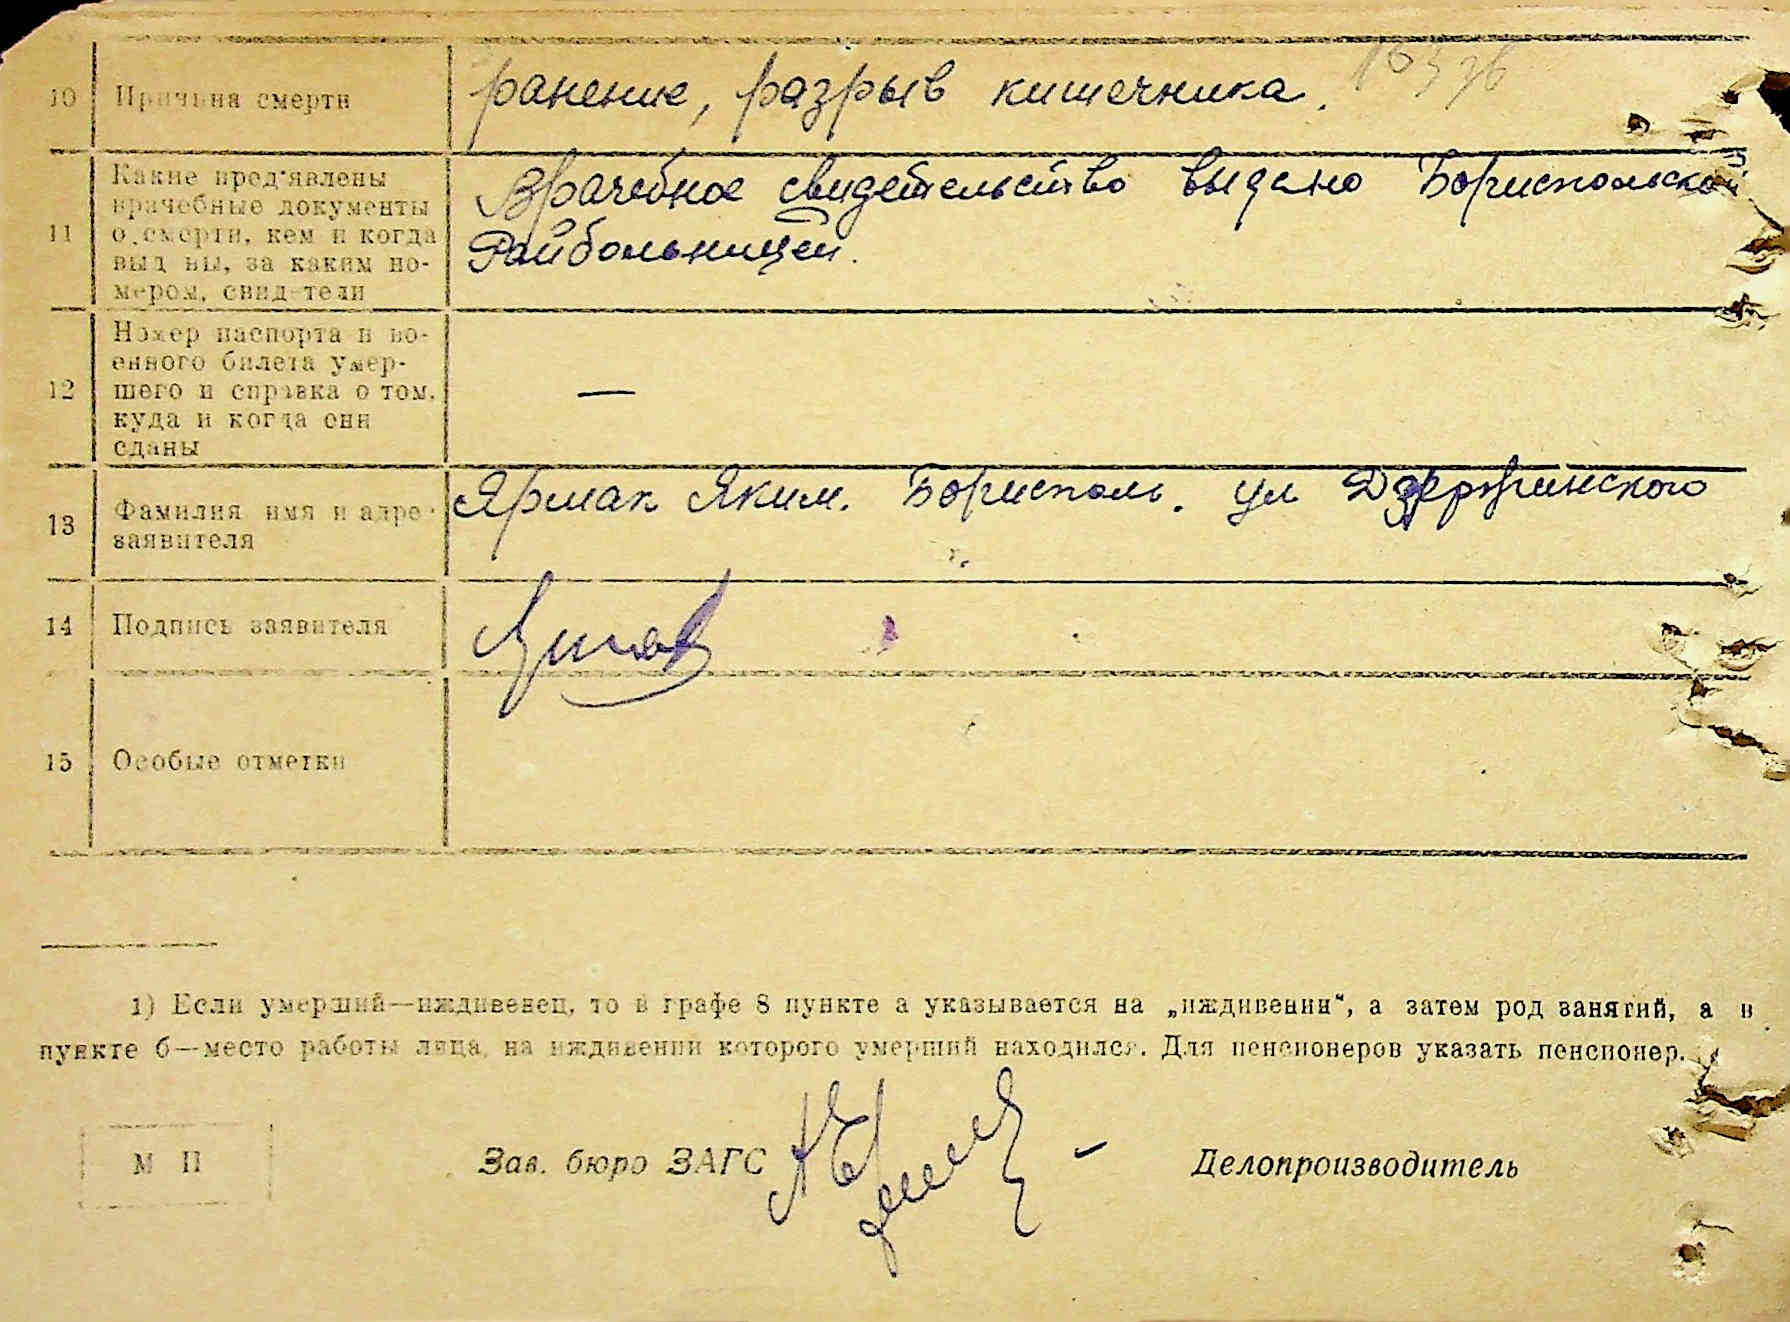 10 Причина смерти ранение, разрыв кишечника.
11 Какие пред'явлены
врачебные документы
о смерти, кем и когда
выданы, за каким но-
мером, свидетели
Врачебное свидетельство выдано Бориспольской
Райбольницей.
12 Номер паспорта и во-
енного билета умер-
шего и справка о том,
куда и когда они
сданы
—
13 Фамилия имя и адре
заявителя
Ярмак Яким. Борисполь. ул Дзержинского
14 Подпись заявителя
15 Особые отметки
1) Если умерший—иждивенец, то в графе 8 пункте а указывается на „иждивении“, а затем род занятий, а в
пункте б—место работы лица, на иждивении которого умерший находился. Для пенсионеров указать пенсионер.
М П Зав. бюро ЗАГС — Делопроизводитель